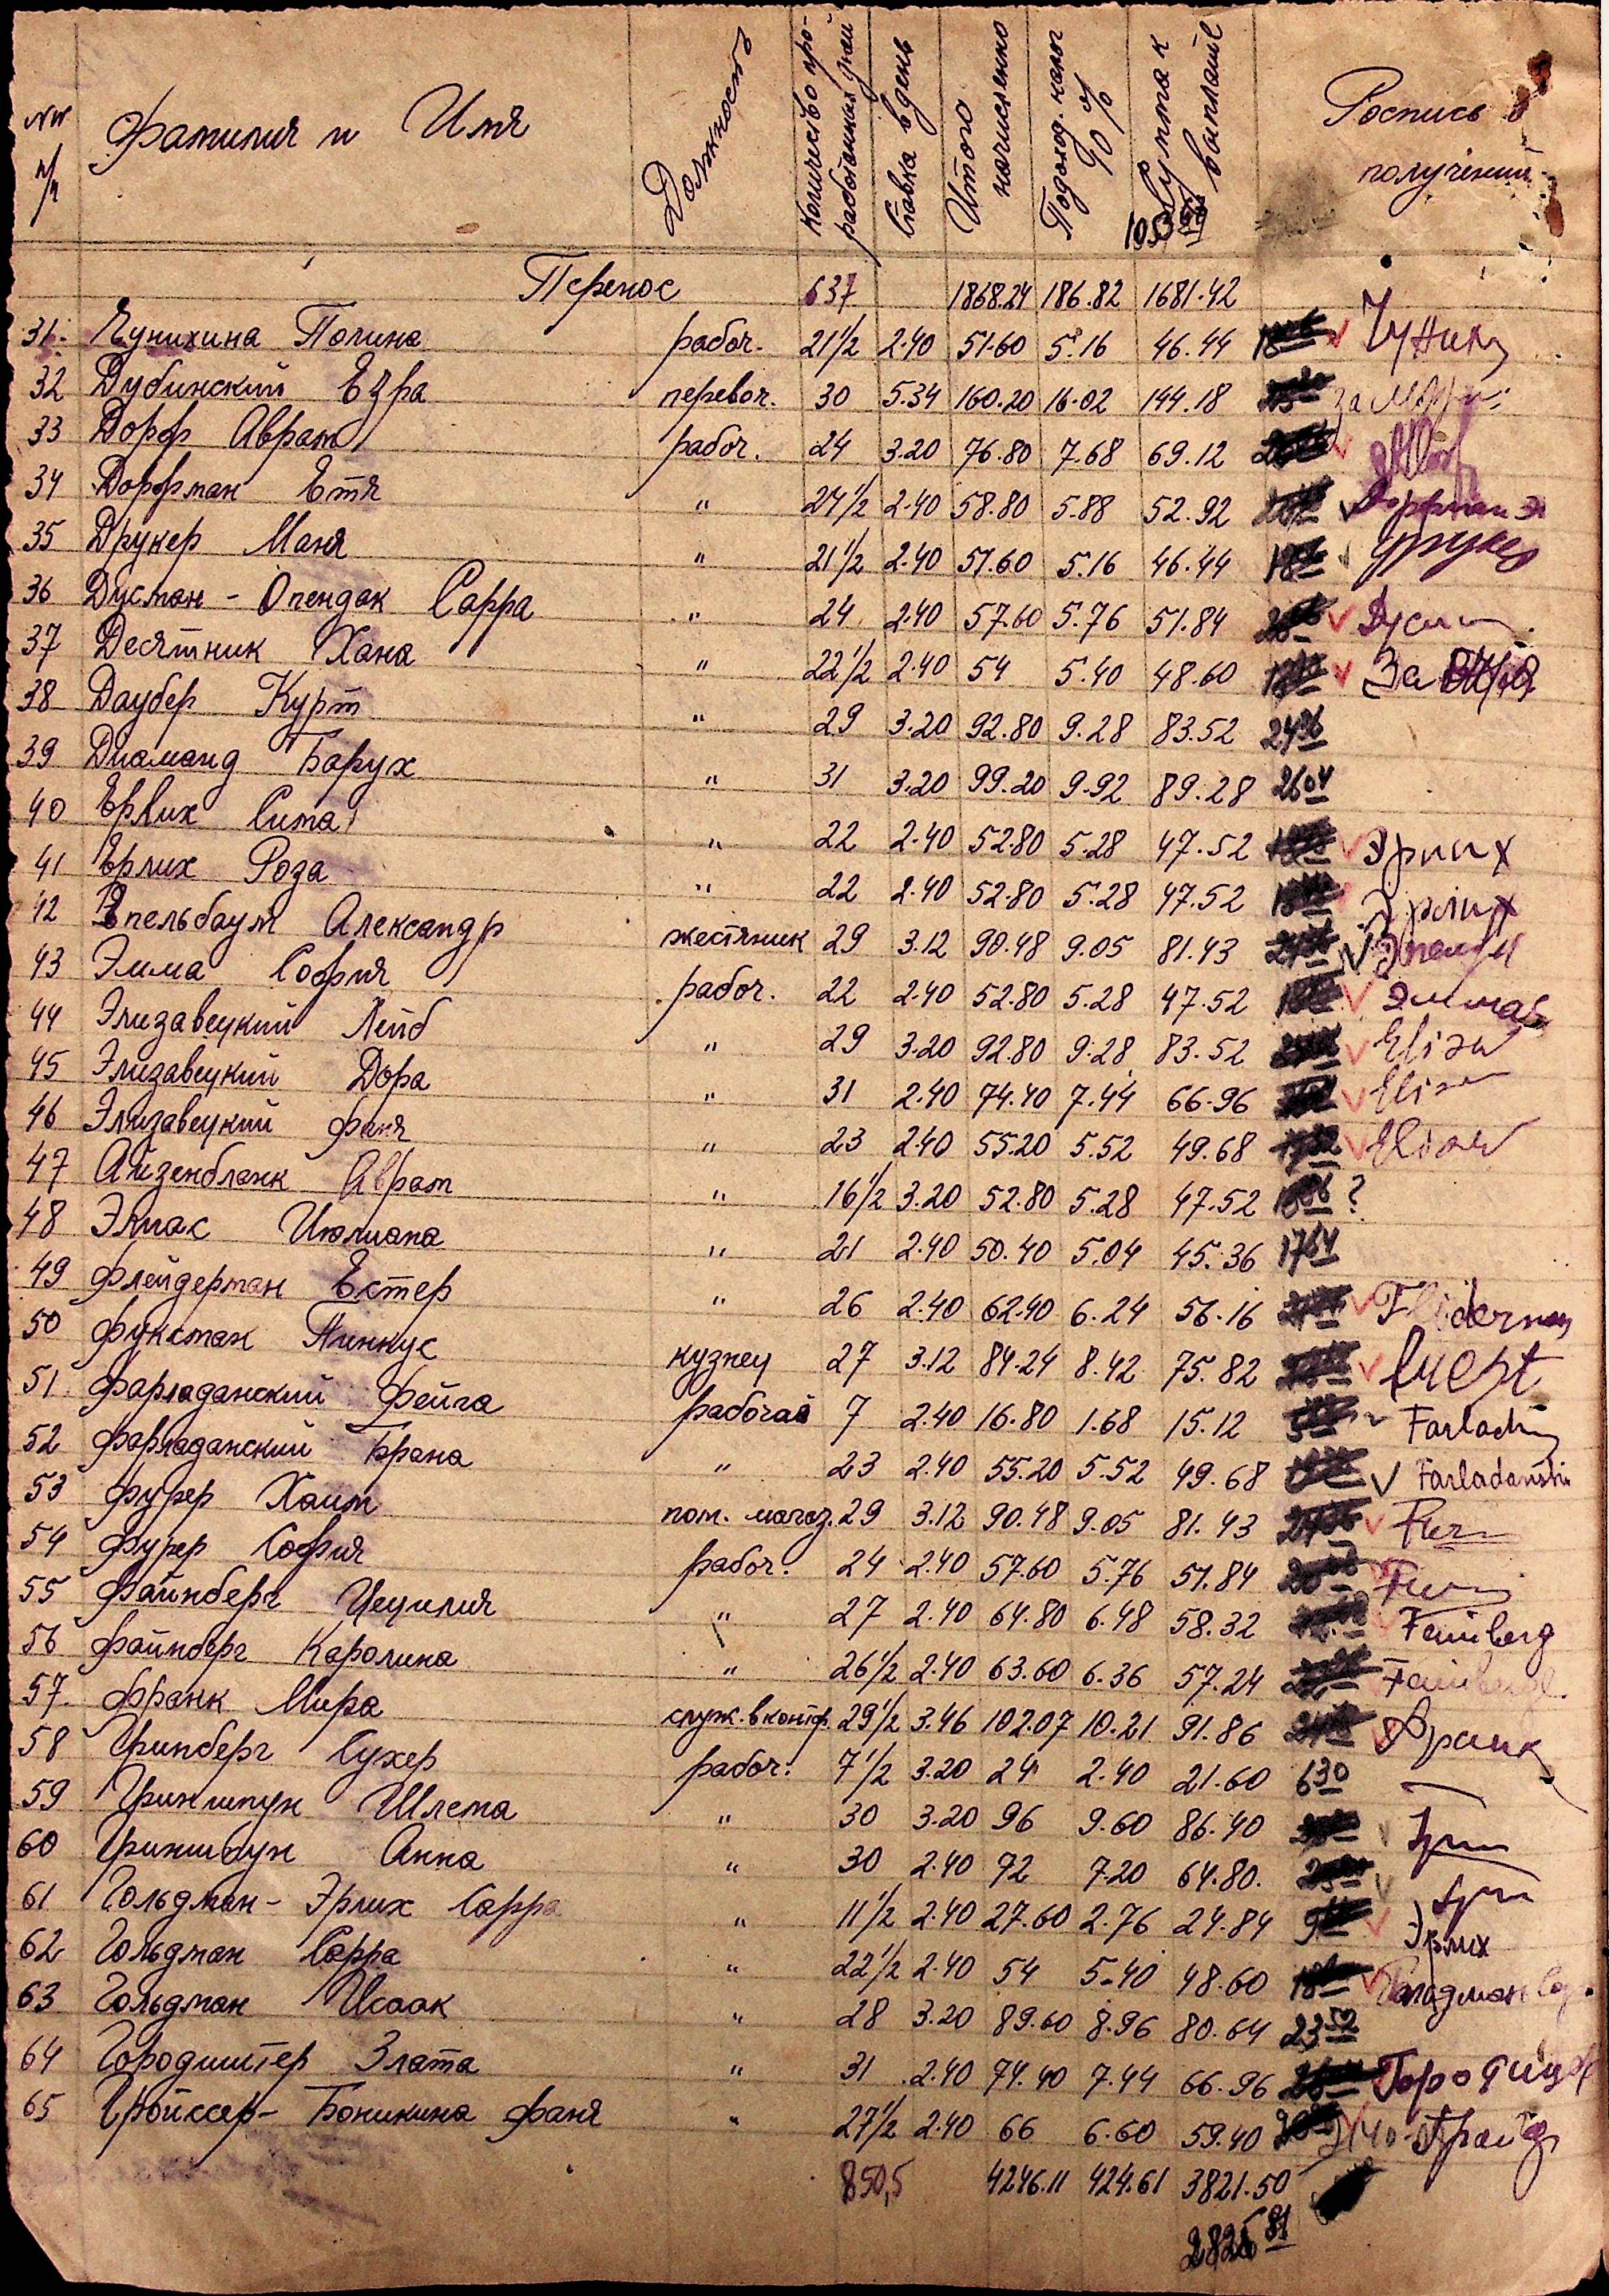 NN п/п Фамилия и Имя Должность Количество проработанных дней Ставка в день Итого начисленно Подоход. налог 10% Сумма к выплате Роспись в получении
1053
Перенос 637 1868.24 186.82 1681.42
31. Чунихина Полина рабоч. 21½ 2.40 51.60 5.16 46.44
32 Дубинский Езра перевоч. 30 5.34 160.20 16.02 144.18 за
33 Дорф Аврам рабоч. 24 3.20 76.80 7.68 69.12
34 Дорфман Етя " 24½ 2.40 58.80 5.88 52.92 Дорфман Э
35 Друкер Маня " 21½ 2.40 51.60 5.16 46.44 Друкер
36 Дусман - Опендак Сарра " 24 2.40 57.60 5.76 51.84 Дусм
37 Десятник Хана " 22½ 2.40 54 5.40 48.60 За
38 Даубер Курт " 29 3.20 92.80 9.28 83.52 24 36
39 Диаманд Барух " 31 3.20 99.20 9.92 89.28 26 04
40 Ерлих Сима " 22 2.40 52.80 5.28 47.52 Эрлих
41 Ерлих Роза " 22 2.40 52.80 5.28 47.52 Эрлих
42 Епельбаум Александр жестяник 29 3.12 90.48 9.05 81.43
43 Эмма София рабоч. 22 2.40 52.80 5.28 47.52 Эмма
44 Элизавецкий Лейб " 29 3.20 92.80 9.28 83.52 Elisaw
45 Элизавецкий Дора " 31 2.40 74.40 7.44 66.96 Elisaw
46 Элизавецкий Фаня " 23 2.40 55.20 5.52 49.68 Elisaw
47 Айзенбланк Аврам " 16½ 3.20 52.80 5.28 47.52 ?
48 Элиас Июлиана " 21 2.40 50.40 5.04 45.36 17 64
49 Флейдерман Естер " 26 2.40 62.40 6.24 56.16 Fliderman
50 Фуксман Пинкус кузнец 27 3.12 84.24 8.42 75.82
51. Фарладанский Фейга рабочая 7 2.40 16.80 1.68 15.12 Farladn
52 Фарладанский Брана " 23 2.40 55.20 5.52 49.68 Farladanski
53 Фурер Хаим пом. магаз. 29 3.12 90.48 9.05 81.43
54 Фурер София рабоч. 24 2.40 57.60 5.76 51.84
55 Файнберг Цецилия " 27 2.40 64.80 6.48 58.32 Fainberg
56 Файнберг Каролина " 26½ 2.40 63.60 6.36 57.24 Fainberg
57. Франк Мира служ. в контр. 29½ 3.46 102.07 10.21 91.86 Франк
58 Гринберг Сухер рабоч. 7½ 3.20 24 2.40 21.60 6 30
59 Гриншпун Шлема " 30 3.20 96 9.60 86.40 Грин
60 Гриншпун Анна " 30 2.40 72 7.20 64.80. Грин
61 Гольдман - Эрлих Сарра " 11½ 2.40 27.60 2.76 24.84 Эрлих
62 Гольдман Сарра " 22½ 2.40 54 5.40 48.60 Гольдман Сар.
63 Гольдман Исаак " 28 3.20 89.60 8.96 80.64 23 52
64 Городиштер Злата " 31 2.40 74.40 7.44 66.96
65 Гройссер - Боникина Фаня " 27½ 2.40 66 6.60 59.40
850,5 4246.11 424.61 3821.50
2826 81